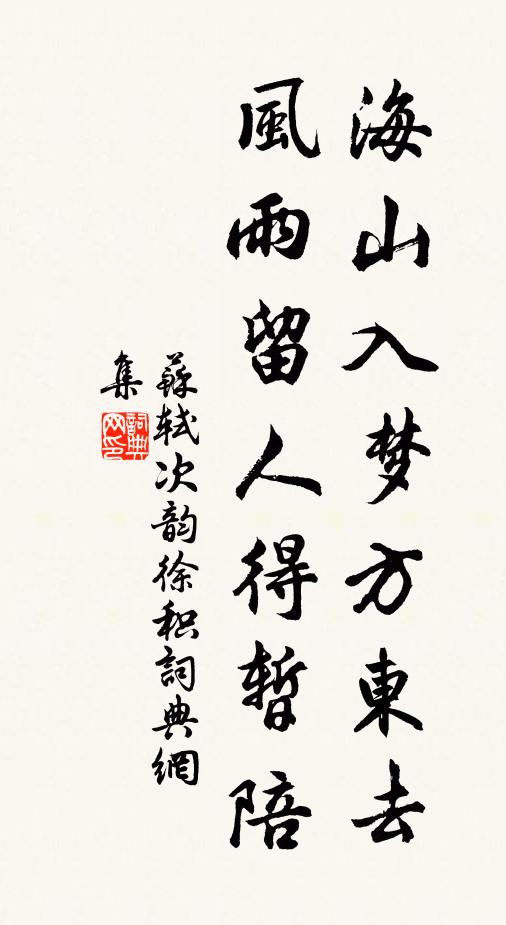 海山入梦方東去
風雨留人得暫陪
蘇軾次韵徐积詞典網
集
詞典网印